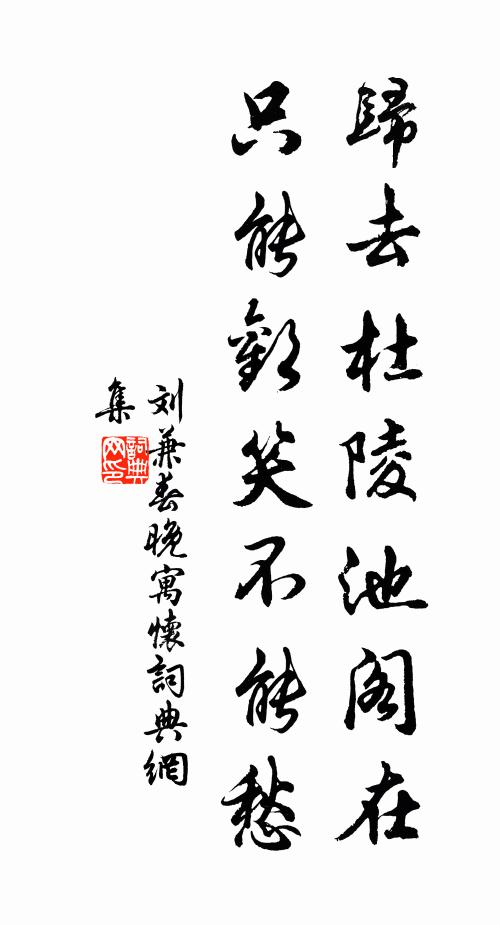 歸去杜陵池阁在
只能歡笑不能愁
刘兼春晚寓懷詞典網
集
詞典
网印